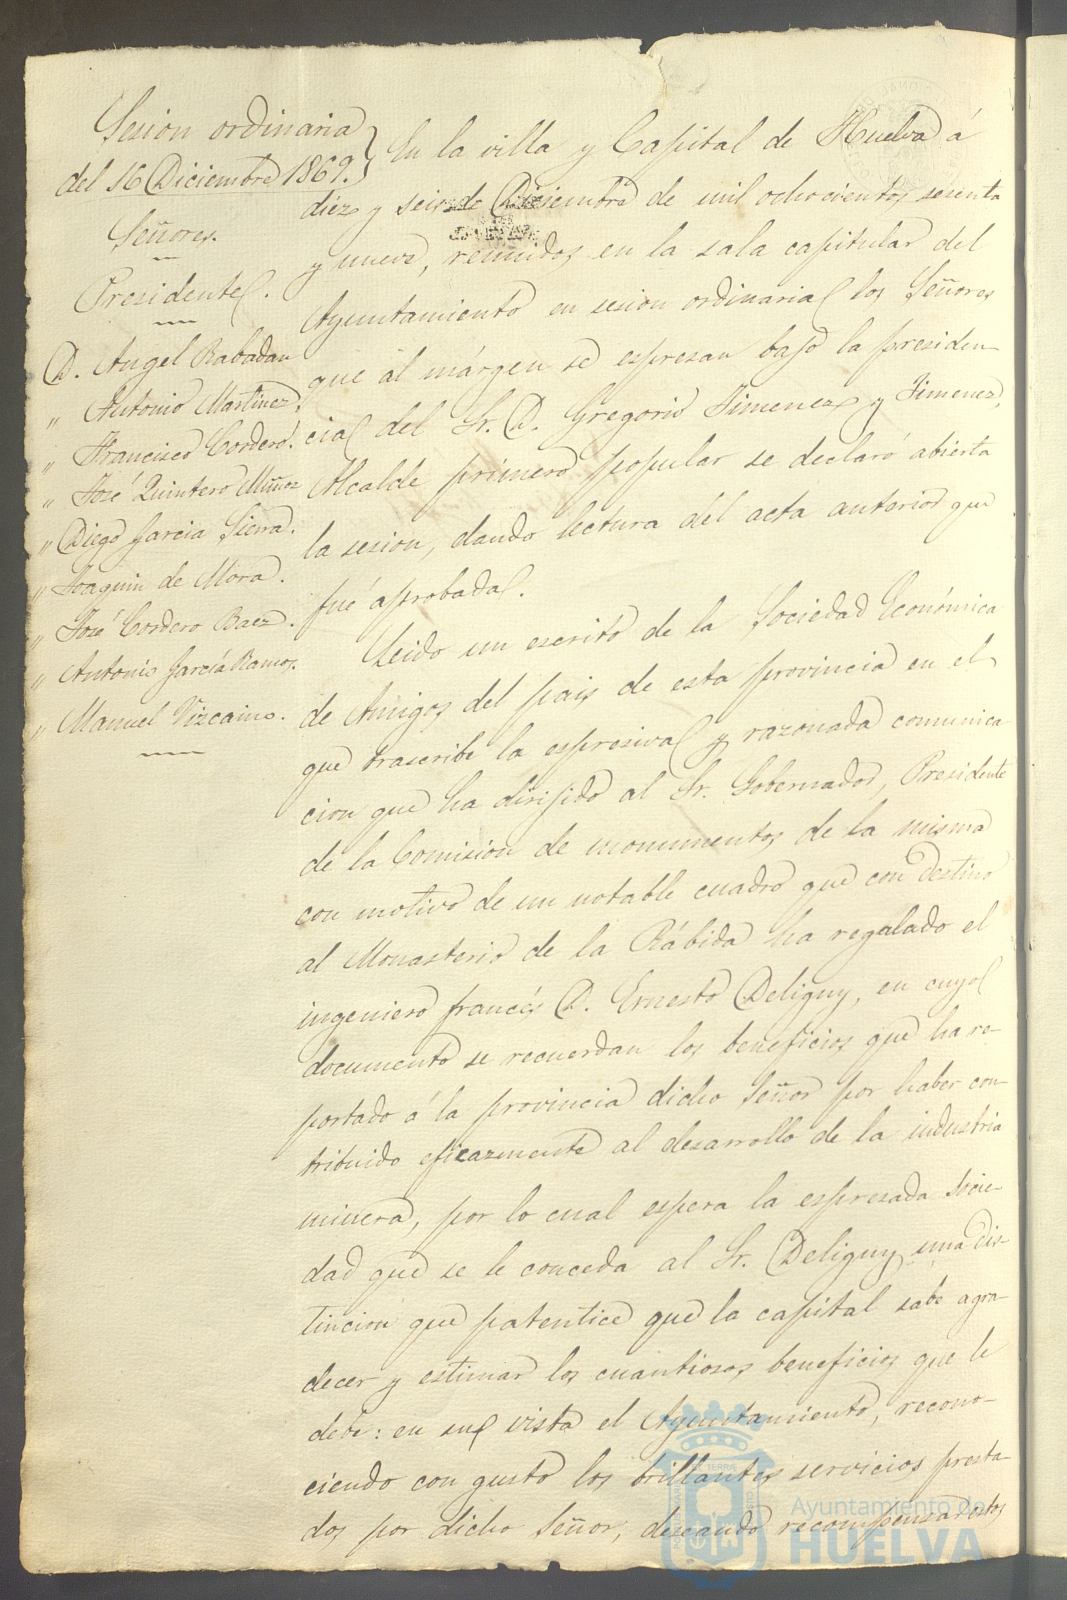 Sesion ordinaria
del 16 Diciembre 1869.
Señores.
Presidente.
D. Angel Rabadan
" Antonio Martinez.
" Francisco Cordero.
" José Quintero Muñoz
" Diego Garcia Sierra.
" Joaquin de Mora.
" José Cordero Baez.
" Antonio García Ramos.
" Manuel Vizcaino.
En la villa y Capital de Huelva á
diez y seis de Diciembre de mil ochocientos sesenta
y nueve, reunidos en la sala capitular del
Ayuntamiento en sesion ordinaria los Señores
que al márgen se espresan bajo la presiden-
cia del Sr. D. Gregorio Jimenez y Jimenez,
Alcalde primero popular se declaró abierta
la sesion, dando lectura del acta anterior que
fué aprobada.
Leido un escrito de la Sociedad Económica
de Amigos del pais de esta provincia en el
que trascribe la espresiva y razonada comunica-
cion que ha dirijido al Sr. Gobernador, Presidente
de la Comision de monumentos de la misma
con motivo de un notable cuadro que con destino
al Monasterio de la Rábida ha regalado el
ingeniero francés D. Ernesto Deligny, en cuyo
documento se recuerdan los beneficios que ha re-
portado á la provincia dicho Señor por haber con-
tribuido eficazmente al desarrollo de la industria
minera, por lo cual espera la espresada Socie-
dad que se le conceda al Sr. Deligny una dis-
tincion que patentice que la capital sabe agra-
decer y estimar los cuantiosos beneficios que le
debe: en su vista el Ayuntamiento, recono-
ciendo con gusto los brillantes servicios presta-
dos por dicho Señor, deseando recompensar estos
Ayuntamiento de
HUELVA